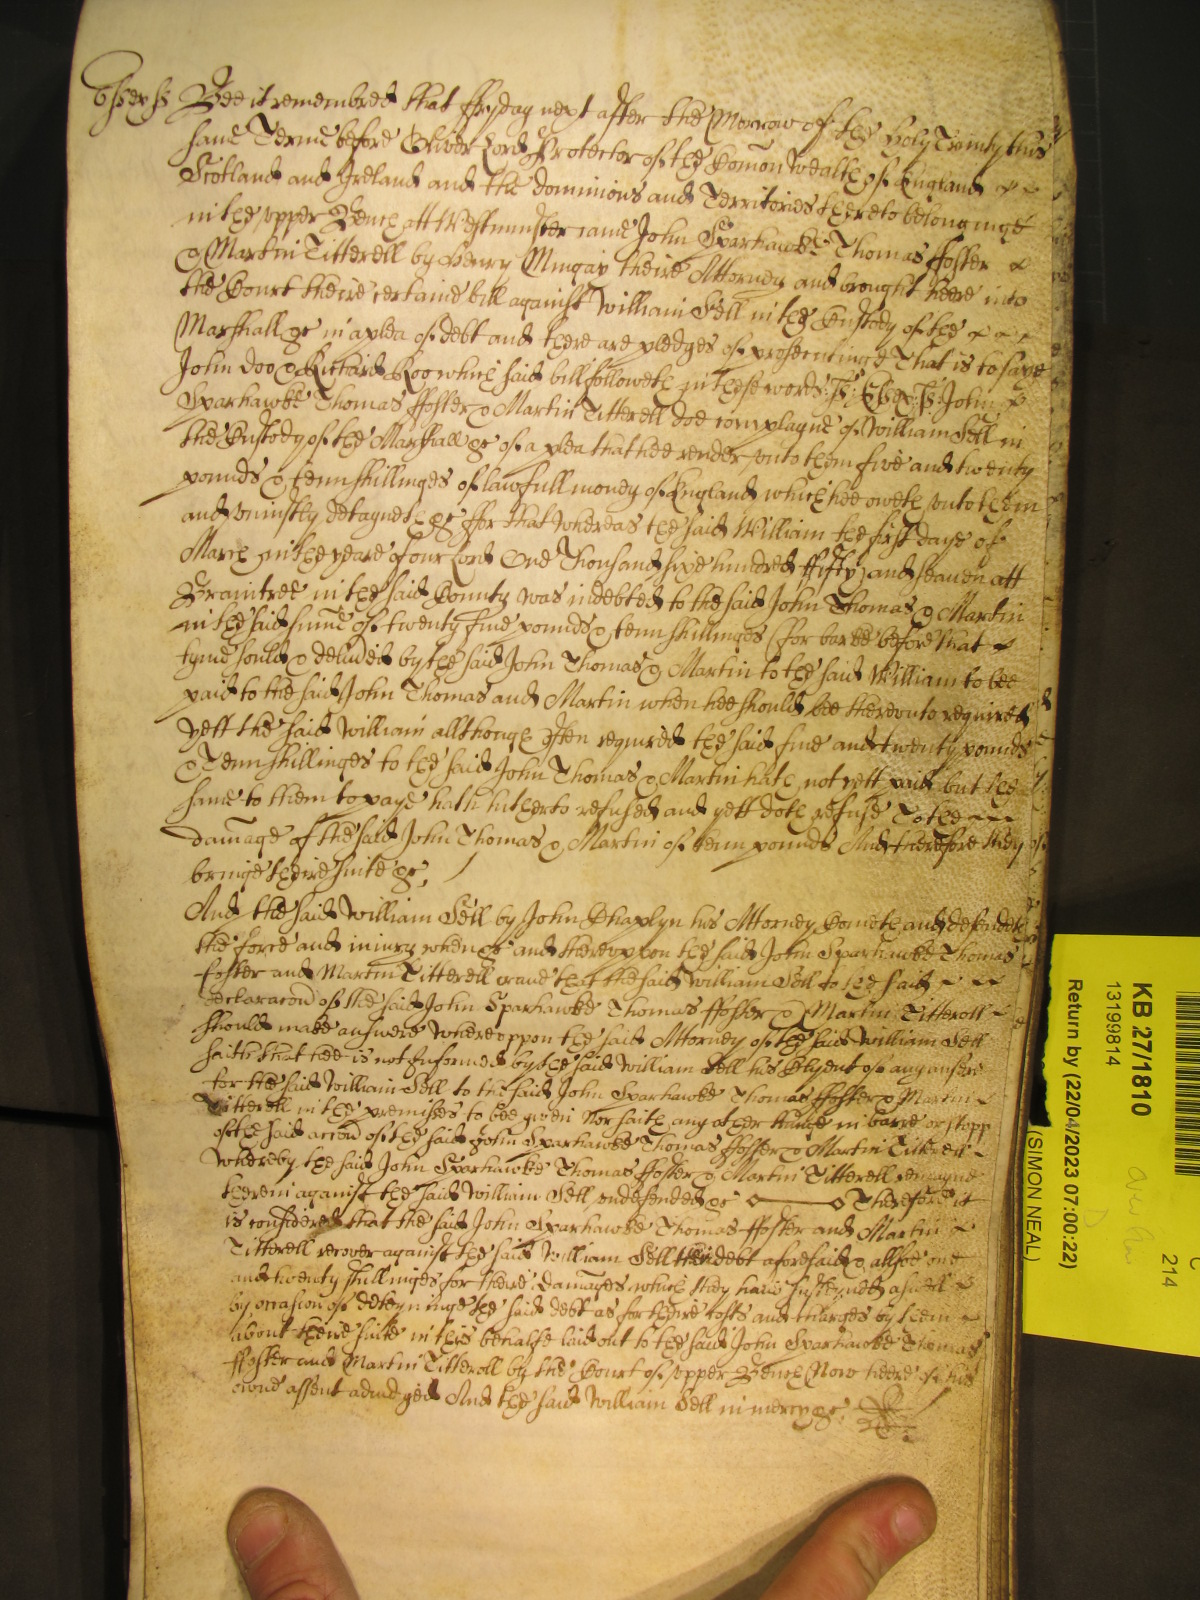 Essex ss Bee it remembred that ffryday next after the Morrow of the Holy Trinity this
same Terme before Oliver Lord Protector of the Comon Wealth of England
Scotland and Ireland and the dominions and Territories thereto belonginge
in the upper Bench att Westminster came John Sparhawke Thomas ffoster
& Martin Titterell by Henry Mingay theire Attorney and brought heere into
the Court theire certaine bill against William Sell in the Custody of the
Marshall &c in a plea of debt and there are pledges of prosecutinge That is to saye
John doo & Richard Roo which said bill followeth in these words ss Essex ss John
Sparhawke Thomas ffoster & Martin Titterell doe complayne of William Sell in
the Custody of the Marshall &c of a plea that hee render unto them five and twenty
pounds & tenn shillinges of lawfull money of England which hee oweth unto them
and uniustly detayneth &c ffor that whereas the said William the first daye of
March in the yeare of our Lord One Thousand sixe hundred ffifty and seaven att
Braintree in the said County was indebted to the said John Thomas & Martin
in the said sume of twenty five pounds & tenn shillinges for barke before that
tyme sould & deliuered by the said John Thomas & Martin to the said William to bee
paid to the said John Thomas and Martin when hee should bee thereunto required
yett the said William allthough often required the said five and twenty pounds
& Tenn shillinges to the said John Thomas & Martin hath not yett paid but the
same to them to paye hath hitherto refused and yett doth refuse To the
damage of the said John Thomas & Martin of tenn pounds And therefore they
bringe theire suite &c
And the said William Sell by John Chaplyn his Attorney Cometh and defendeth
the force and iniury when &c and thereupon the said John Sparhawke Thomas
foster and Martin Titterell crave that the said William Sell to the said
declaracon of the said John Sparhawke Thomas ffoster & Martin Titterell
should make answere Whereuppon the said Attorney of the said William Sell
saith that hee is not Informed by the said William Sell his Clyent of any answere
for the said William Sell to the said John Sparhawke Thomas ffoster & Martin
Titterell in the premises to bee given Nor saith any other thinge in barre or stopp
of the said accon of the said John Sparhawke Thomas ffoster & Martin Titterell
Whereby the said John Sparhawke Thomas ffoster & Martin Titterell remayne
therein against the said William Sell undefended &c Therefore it
is considered that the said John Sparhawke Thomas ffoster and Martin
Titterell recover against the said William Sell their debt aforesaid & allsoe one
and twenty shillinges for theire damages which they have susteyned aswell
by occasion of deteyninge the said debt as for theire costs and charges by them
about theire suite in this behalfe laid out to the said John Sparhawke Thomas
ffoster and Martin Titterell by the Court of upper Bench Now heere of his
owne assent adiudged And the said William Sell in mercy &c
KB 27/1810
13199814
Return by (22/04/2023 07:00:22)
(SIMON NEAL)
214